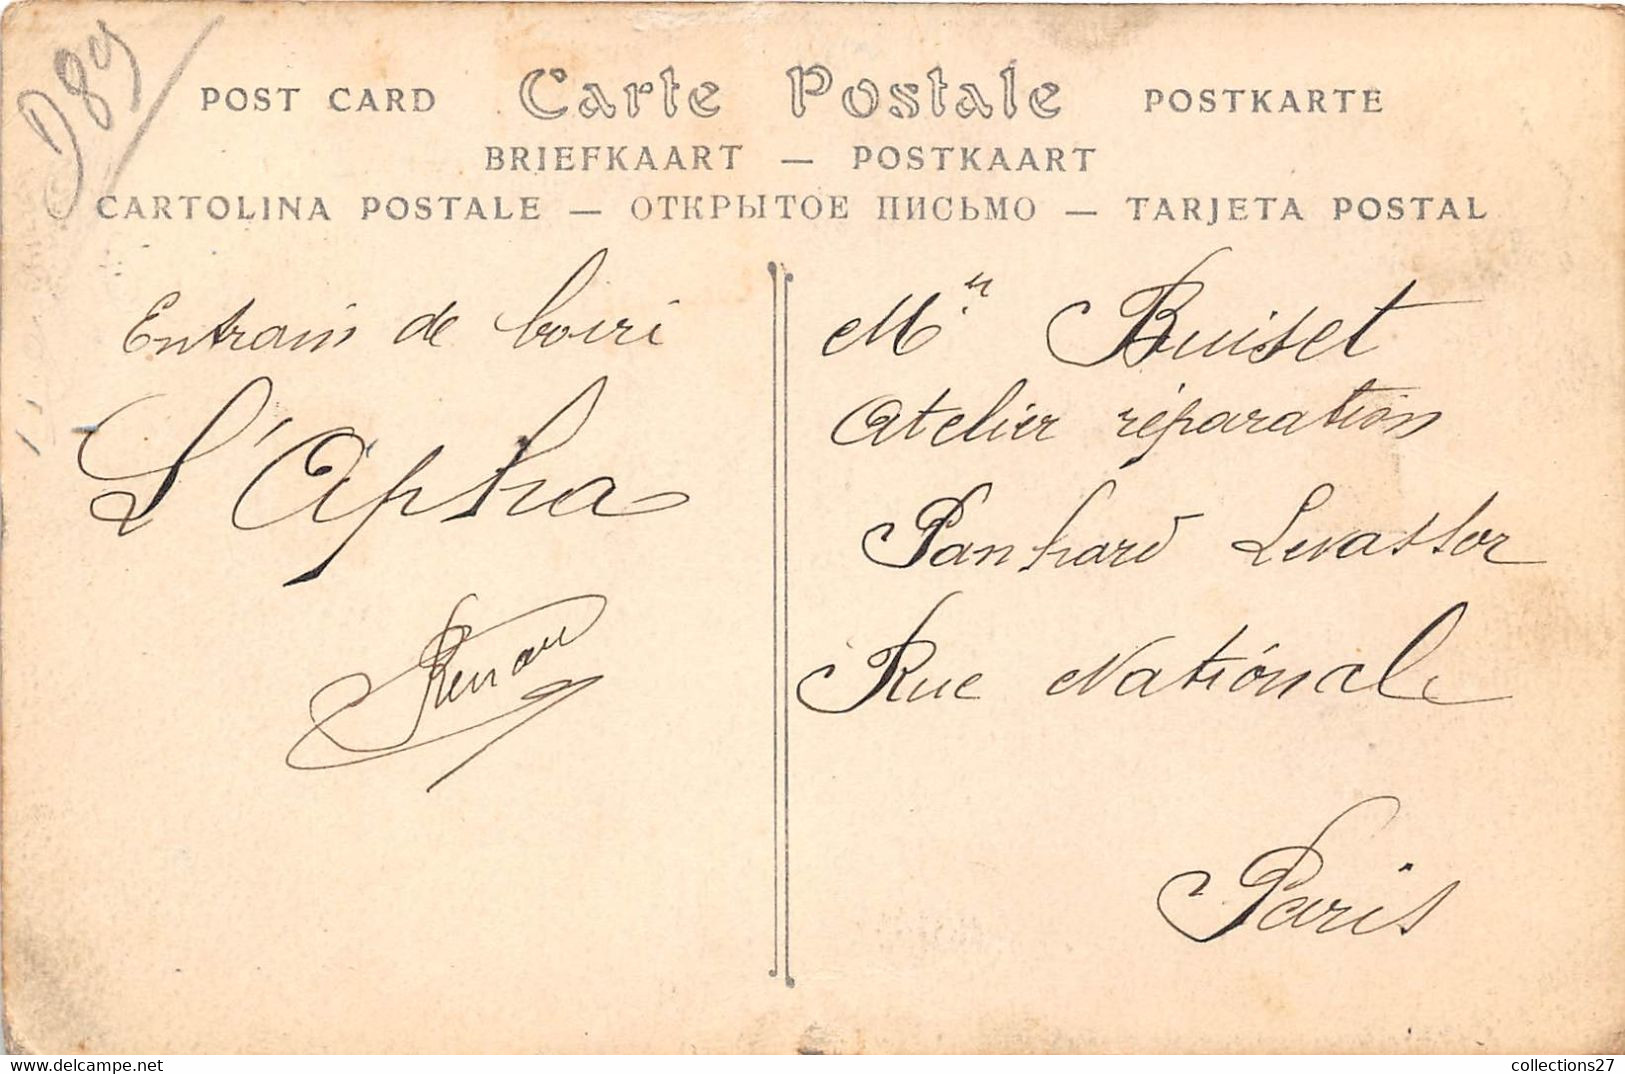 D89
POST CARD Carte Postale POSTKARTE
BRIEFKAART — POSTKAART
CARTOLINA POSTALE — ОТКРЫТОЕ ПИСЬМО — TARJETA POSTAL
Entrain de boire
L'Apha
Renau
Mr Buisset
Atelier réparation
Panhard Levassor
Rue National
Paris
www.delcampe.net
collections27